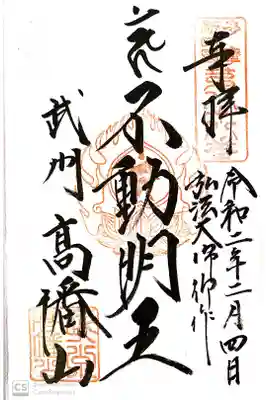 奉拝
令和二年二月四日
弘法大师御作
不動明王
武州 高幡山
CS